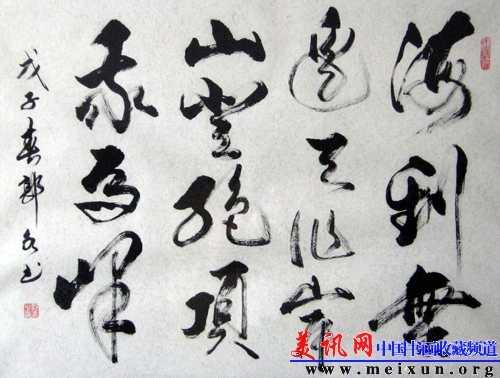 海到無
邊天作岸
山登絕頂
我為峰
戊子春郭
美讯网 中国书画收藏频道
www.meixun.org